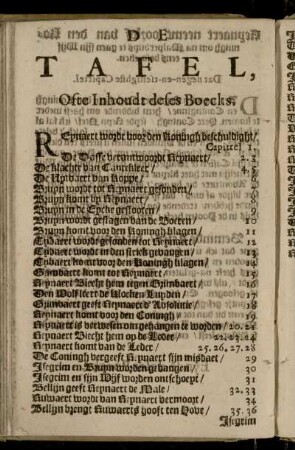 DE
TAFEL,
Ofte Inhoudt deses Boecks.
REynaert wordt voor den Koningh beschuldight /
Capittel 1.
De Dasse verantwoordt Reynaert / 2. 3
De klachte van Cantekleer /
De Uytvaert van Koppe /
Bruyn wordt tot Reynaert gesonden /
Bruyn komt by Reynaert /
Bruyn in de Eycke geslooten /
Bruyn wordt geslagen van de Boeren / 10
Bruyn komt voor den Koningh klagen / 11
Tybaert wordt gesonden tot Reynaert / 12
Tybaert wordt in den strick gevangen / 13
Tybaert komt voor den Koningh klagen / 14
Grimbaert komt tot Reynaert / 15
Reynaert Biecht hem tegen Grimbaert / 16
Den Wolf leert de Klocken Luyden / 17
Grimbaert geeft Reynaert d'Absolutie / 18
Reynaert komt voor den Coningh / 19
Reynaert is verwesen om gehangen te worden / 20. 21
Reynaert Biecht hem op de Leder / 22. 23. 24
Reynaert komt van de Leder / 25. 26. 27. 28
De Coningh vergeeft Reynaert sijn misdaet / 29
Isegrim en Bruyn worden gevangen / 30
Isegrim en sijn Wijf worden ontschoeyt / 31
Bellijn geeft Reynaert de Male / 32. 33
Kuwaert wordt van Reynaert vermoort / 34
Bellijn brengt Kuwaerts hooft ten Hove / 35. 36
Isegrim